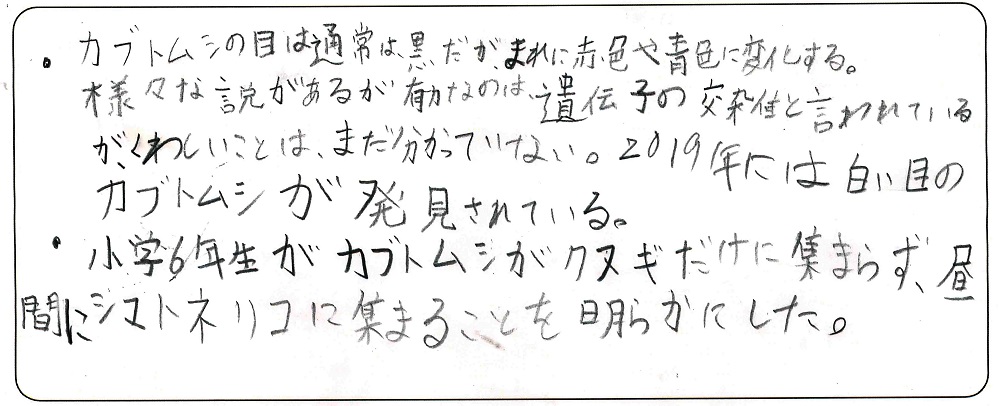 ・カブトムシの目は通常は、黒だが、まれに赤色や青色に変化する。
様々な説があるが有力なのは、遺伝子の交雑性と言われている
が、くわしいことは、まだ分かっていない。2019年には白い目の
カブトムシが発見されている。
・小学6年生がカブトムシがクヌギだけに集まらず、昼
間にシマトネリコに集まることを明らかにした。